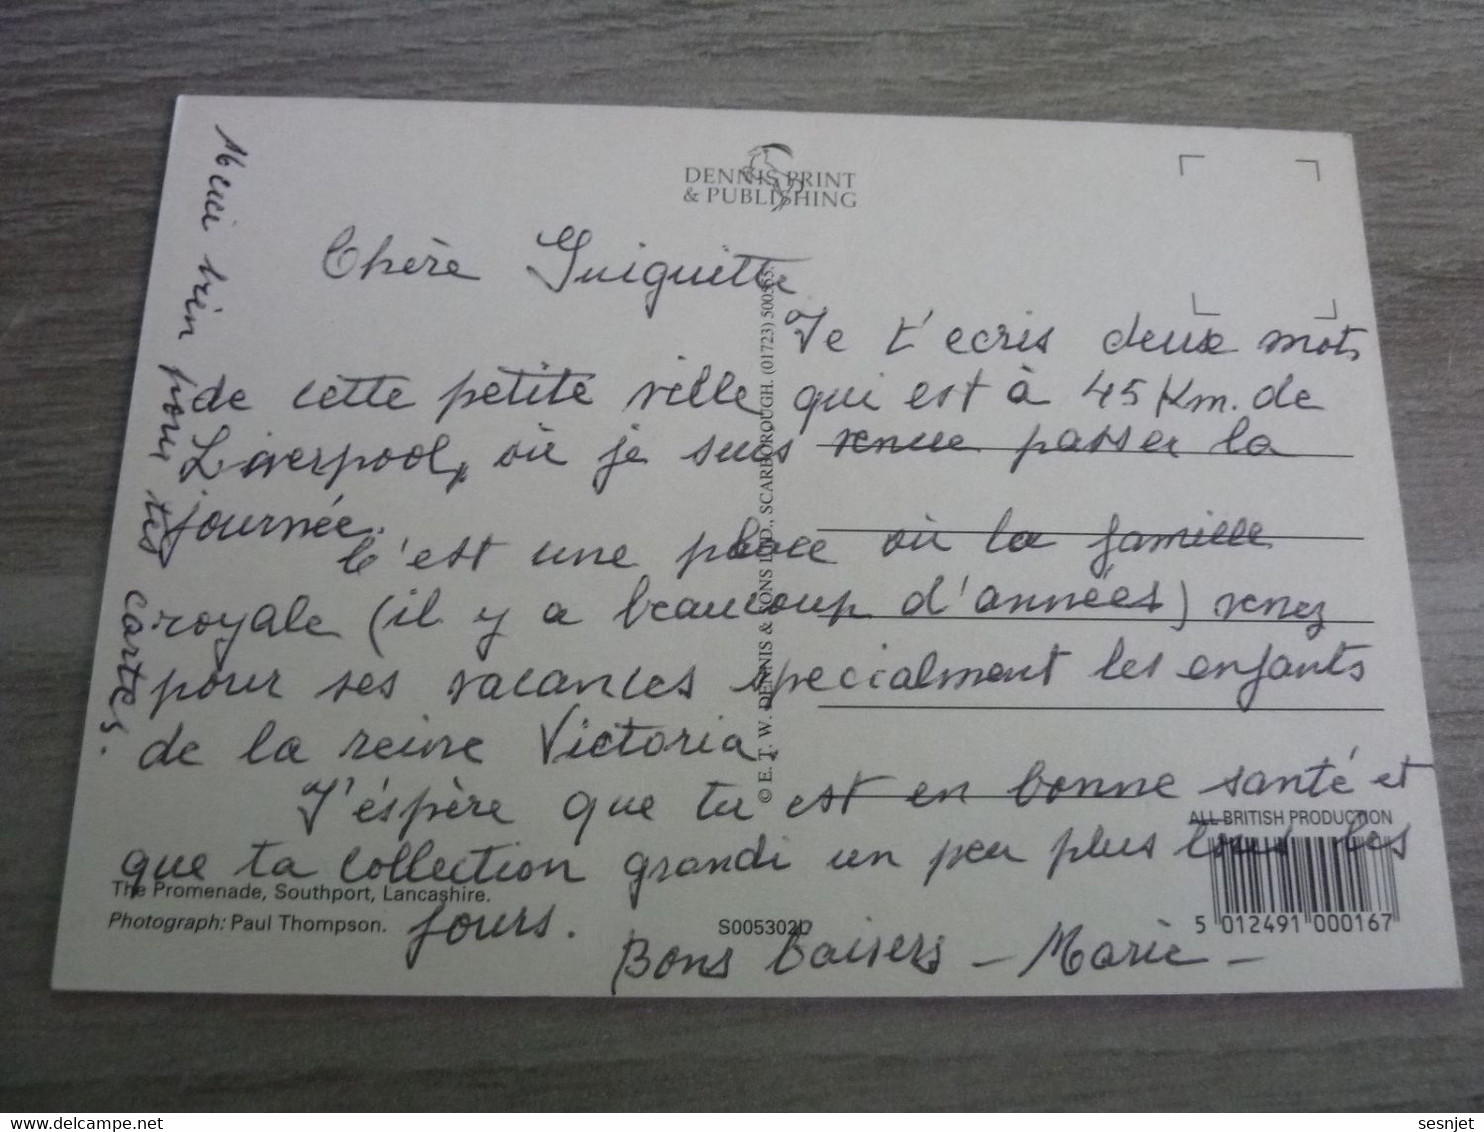 DENNIS PRINT
& PUBLISHING
Merci bien pour tes cartes.
Chère Guiguitte
Je t'ecris deux mots
de cette petite ville qui est à 45 Km. de
Liverpool, où je suis venue passer la
journée.
C'est une place où la famille
royale (il y a beaucoup d'années) venez
pour ses vacances specialment les enfants
de la reine Victoria.
J'éspère que tu est en bonne santé et
que ta collection grandi un peu plus tous les
jours.
Bons baisers - Marie -
© E. T. W. DENNIS & SONS LTD., SCARBOROUGH. (01723) 500555.
ALL BRITISH PRODUCTION
The Promenade, Southport, Lancashire.
Photograph: Paul Thompson.
S005302L
5 012491 000167
sesnjet